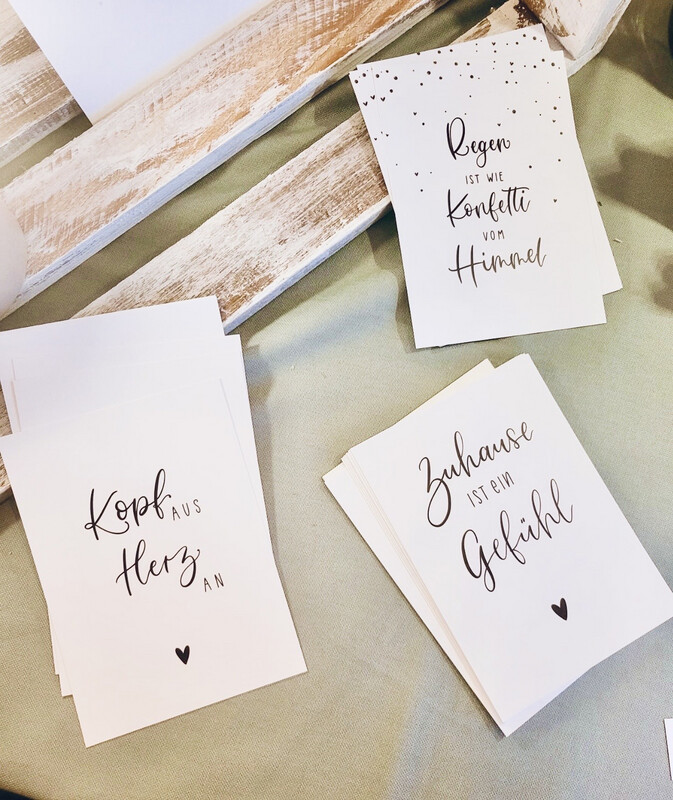 Regen
IST WIE
Konfetti
VOM
Himmel
Kopf AUS
Herz AN
Zuhause
IST EIN
Gefühl